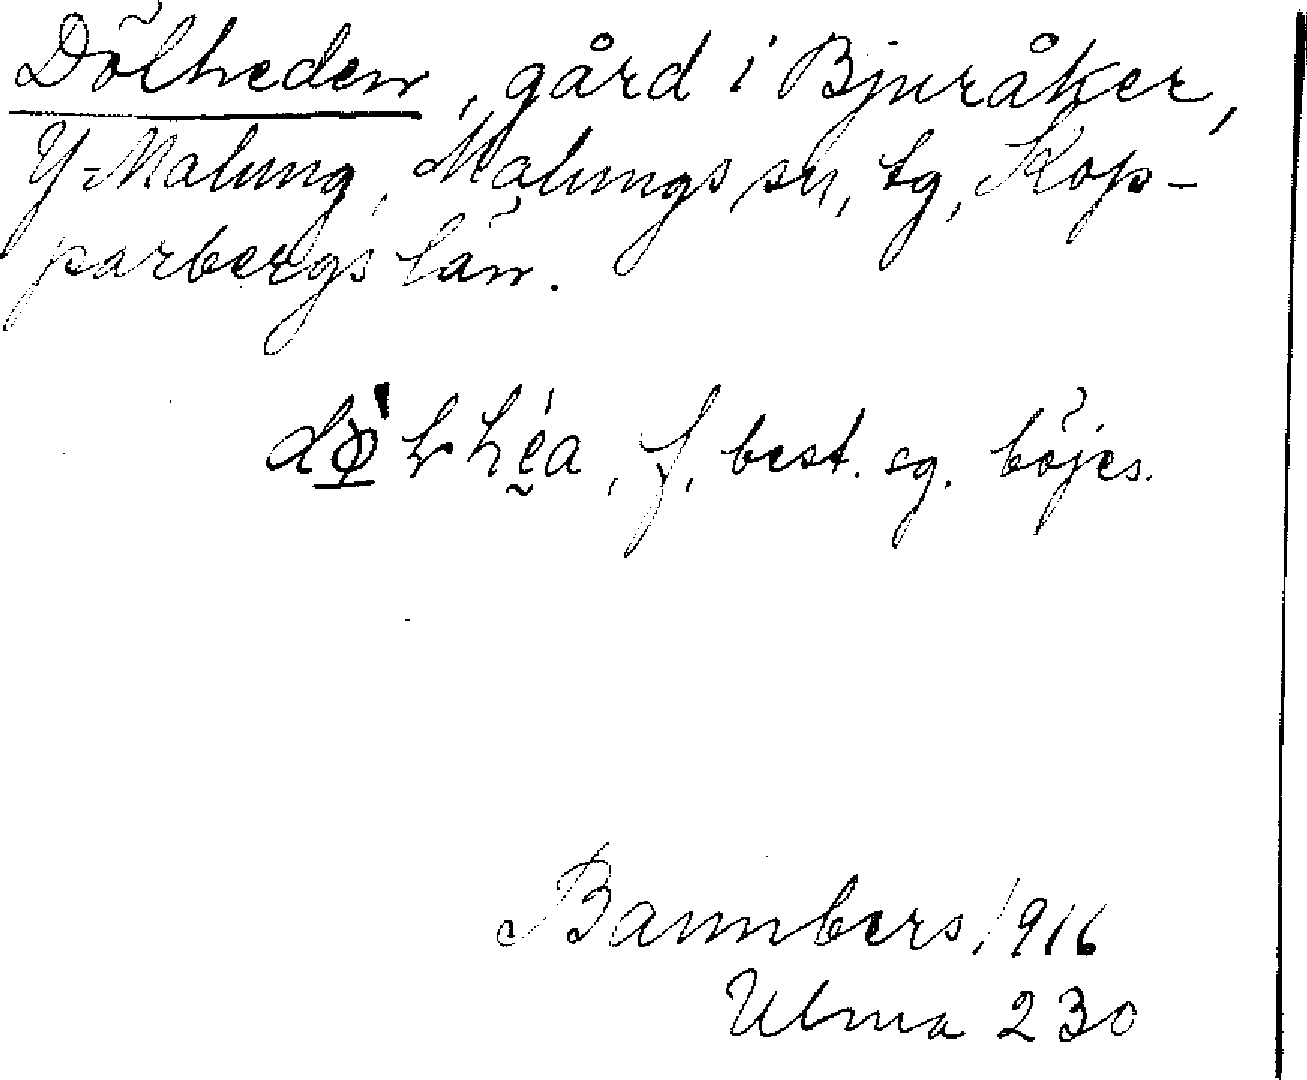 Dölheden, gård i Bjuråker,
Y-Malung, Malungs sn, tg, Kop-
parbergs län.
f, best. sg. böjes.
Bannbers, 1916
Ulma 230